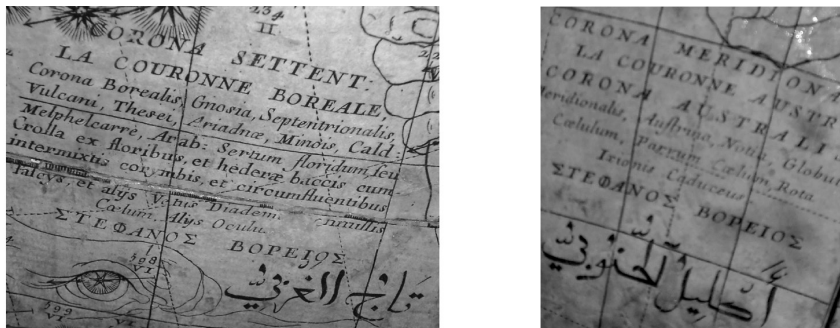 234
II.
CORONA SETTENT.
LA COURONNE BOREALE,
Corona Borealis, Gnosia, Septentrionalis,
Vulcani, Thesei, Ariadnæ, Minois, Cald:
Melphelcarre, Arab: Sertum floridum, seu
Crolla ex floribus, et hederæ baccis cum
intermixtis corymbis, et circumfluentibus
falcys, et alys Diadem.
Cœlum, Alys Oculu.
ΣΤΕΦΑΝΟΣ ΒΟΡΕΙΟΣ
VI
VI
VI
تاج الغربي
CORONA MERIDIONA
LA COURONNE AUSTR
CORONA AUSTRALI
Meridionalis, Austrina, Notia, Globus
Cœlulum, parvum Cœlum, Rota
Ixionis Caduceus
ΣΤΕΦΑΝΟΣ ΒΟΡΕΙΟΣ
14
اكليل الجنوبي